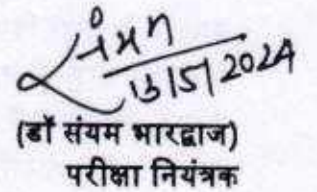 संयम
13/5/2024
(डॉ संयम भारद्वाज)
परीक्षा नियंत्रक